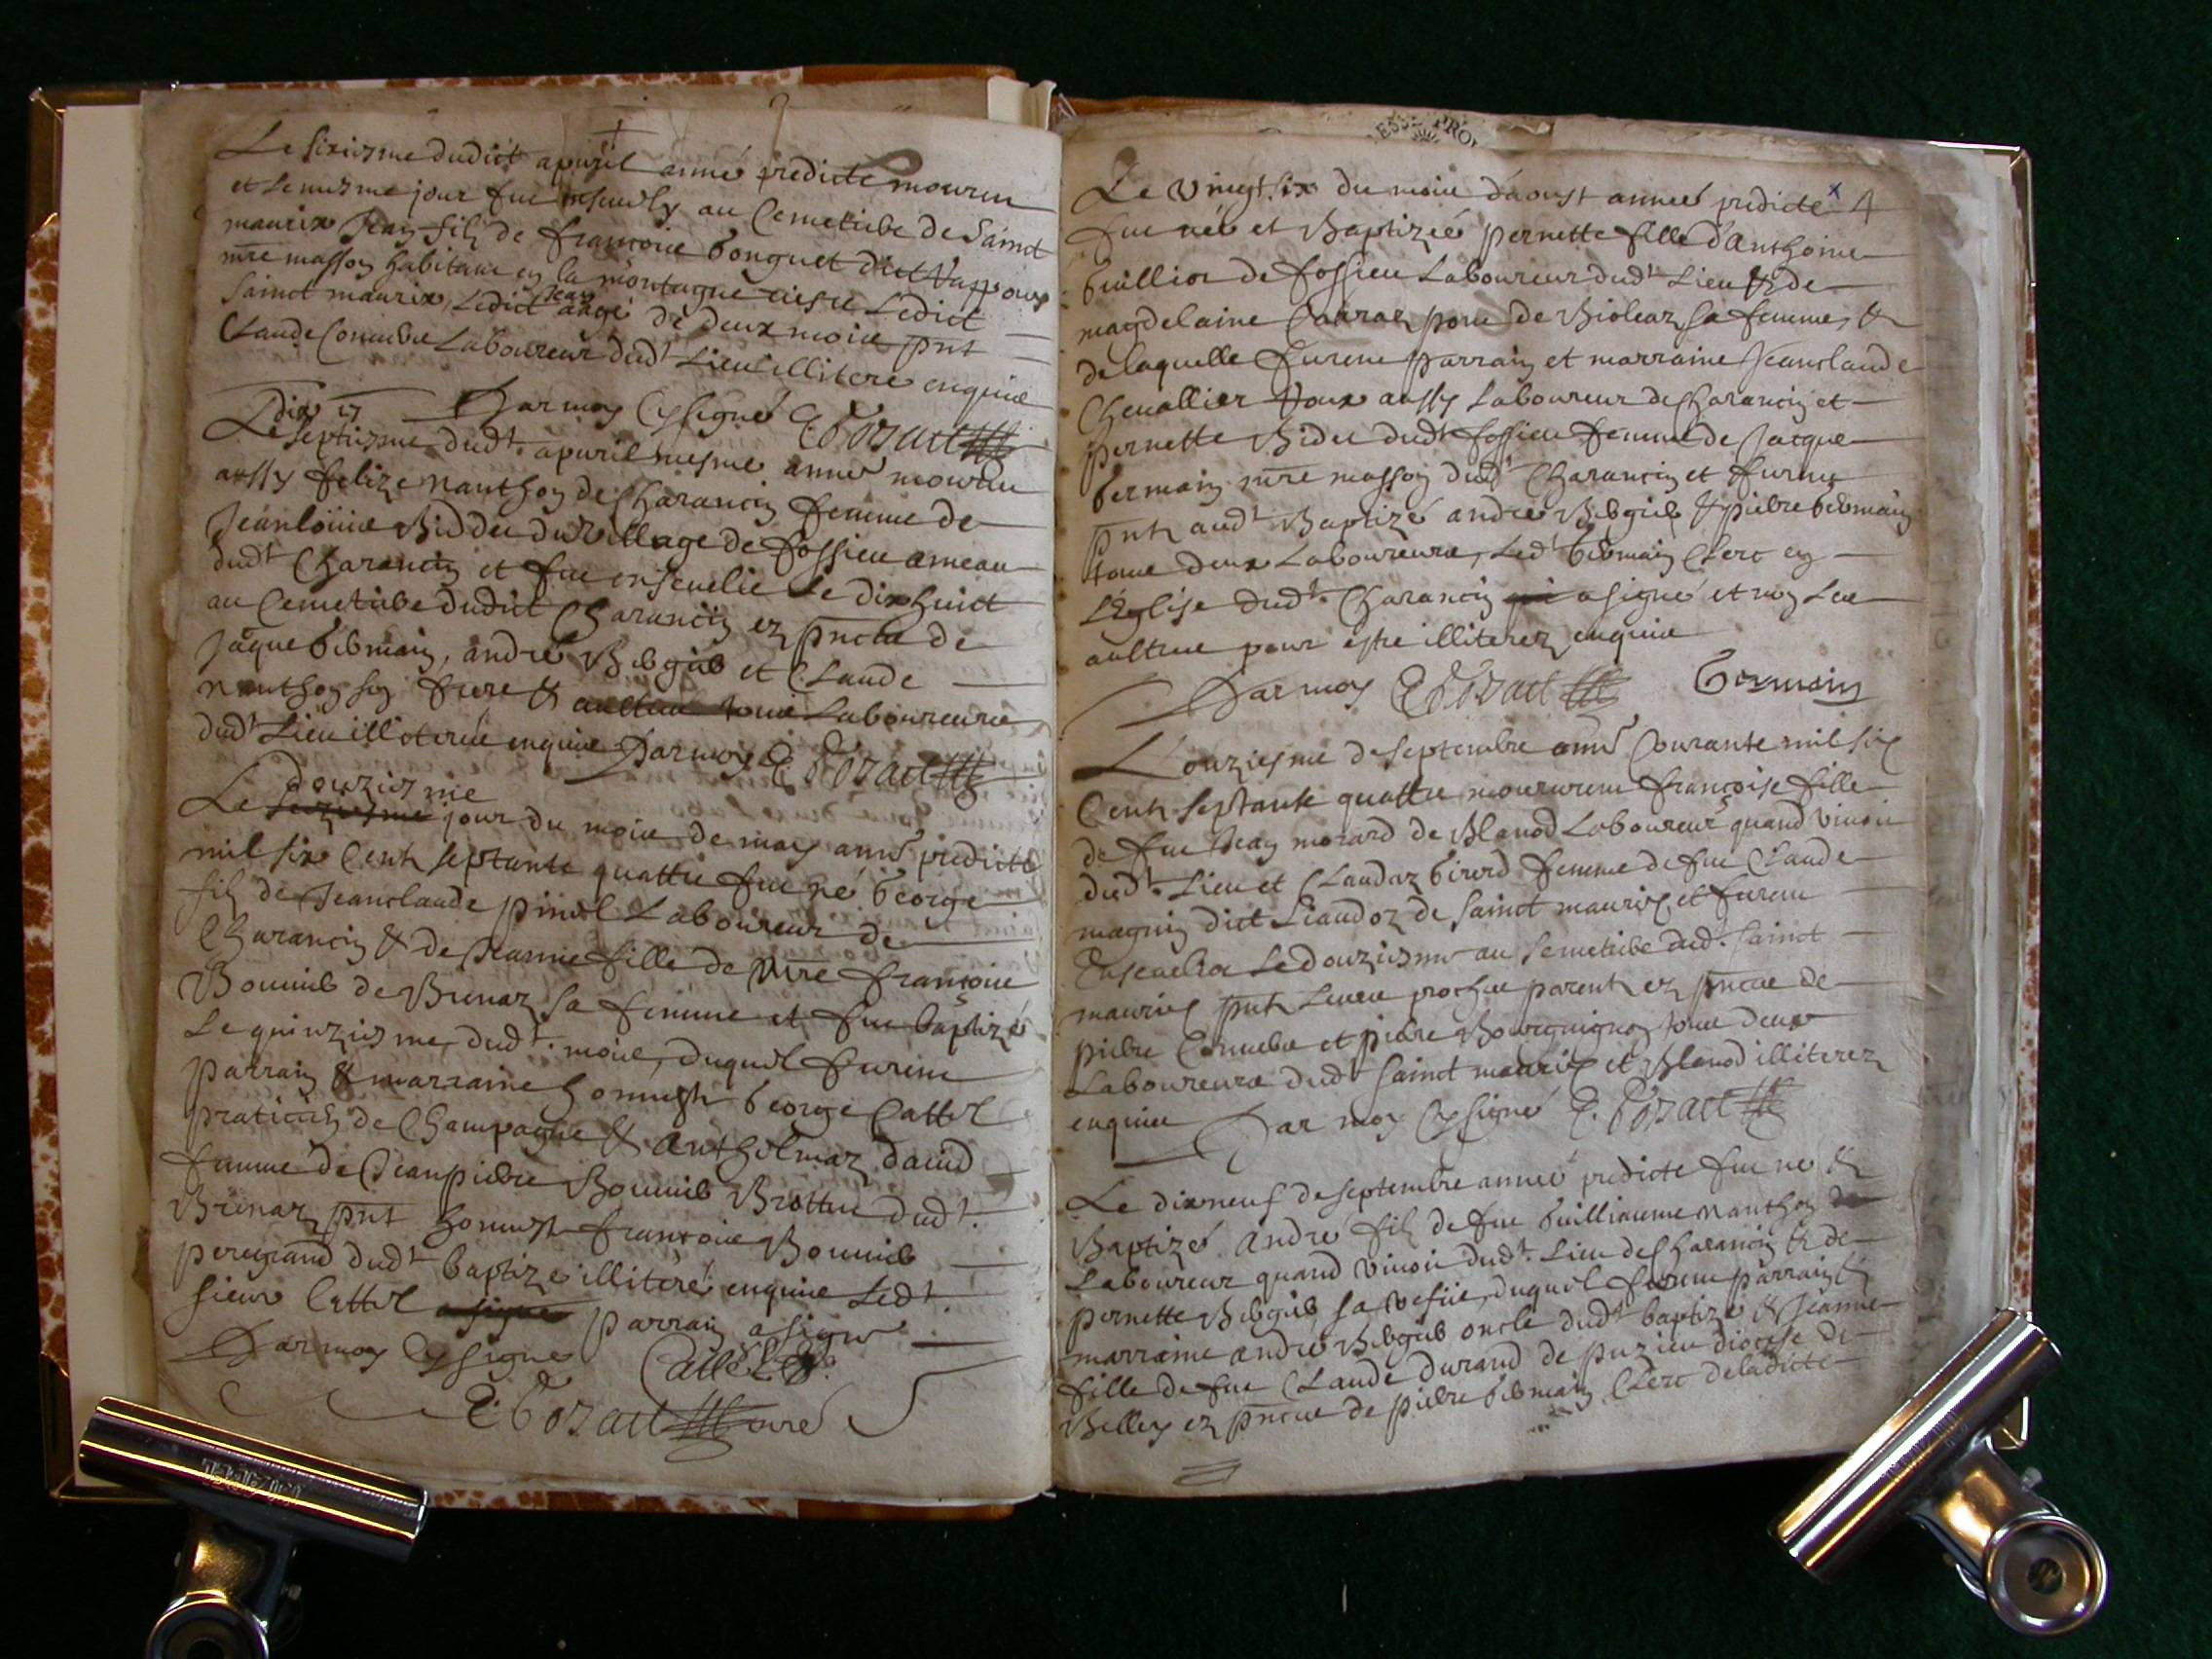 Le sixiesme dudict apvril année predicte mourut
et le mesme jour fut ensevely au Cemetiere de Sainct
maurix Jean filz de françois bonguet dict
mre masson habitant en la montagne Ledict
sainct maurix, Ledict Jean aagé de deux mois pnt
Claude Laboureur dudt Lieu illiteré enquis
Par moy Cy signé E bozact
Le dix septiesme dudt. apvril mesme année mourut
aussy felize nanthoy de Charancin femme de
Jeanlouis Biddu du village de fossieu ameau
dudt Charancin et fut ensevelie Le dixhuict
au Cemetiere dudict Charancin ez pnce de
Jaque Germain, andre Bergier et Claude
nanthoy son frere & aultres tous Laboureurs
dudt Lieu illiterés enquis Par moy E bozact
Le douziesme jour du mois de may année predicte
mil six Cent septante quattre fut né George
filz de Jeanclaude pinel Laboureur de
Charancin & de Jeanne fille de Mre françois
Bonnib de Brenaz sa femme et fut baptizé
Le quinziesme dudt. mois, duquel furent
Parrain & marraine honneste George Cattel
praticien de Champagne & Anthelmaz david
femme de Jeanpierre Bonnib Brottu dudt.
Brenaz pnt honneste françois Bonnib
peregrand dudt baptizé illiteré enquis Ledt.
sieur Cattel a signe parrain a signe
Par moy Cy signé Cattel
E bozact curé
Le vingt six du mois d'aoust année predicte x 4
fut née et Baptizée pernette fille d'anthoine
de fossieu Laboureur dudt Lieu & de
magdelaine de Bioleaz sa femme, &
de laquelle furent parrain et marraine Jeanclaude
Chevallier Roux aussy Laboureur de Charancin et
pernette Bidu dudt fossieu femme de Jacque
Germain mre masson dudt Charancin et furent
pnts audt Baptizé andré Bergier & pierre Germain
tous deux Laboureurs, Ledt Germain Clerc en
L'Eglise dudt. Charancin qui a signé et non Les
aultres pour estre illiterez enquis
Par moy E bozact Germain
L'onziesme de septembre année Courante mil six
Cent septante quattre moururent françoise fille
de fut Jean morard de Blanod Laboureur quand vivoit
dudt. Lieu et Claudaz Girerd femme de fut Claude
magnin dict Liaudoz de sainct maurix et furent
Ensevelies Le douziesme au Semetiere dudt. sainct
maurix pnts Leurs proches parents ez pnce de
pierre et pierre Bourguignoz tous deux
Laboureurs dudt sainct maurix et Blanod illiterez
enquis Par moy Cy signé E. bozact
Le dixneuf de septembre année predicte fut né &
Baptizé André filz de fut Guilliaume nanthoy de
Laboureur quand vivoit dudt. Lieu de Charancin & de
pernette Bergier sa vefve, duquel furent parrain &
marraine andré Bergier oncle dudt baptizé & Jeanne
fille de fut Claude durand de puzieu diocese de
Belley ez pnce de pierre Germain Clerc de ladicte